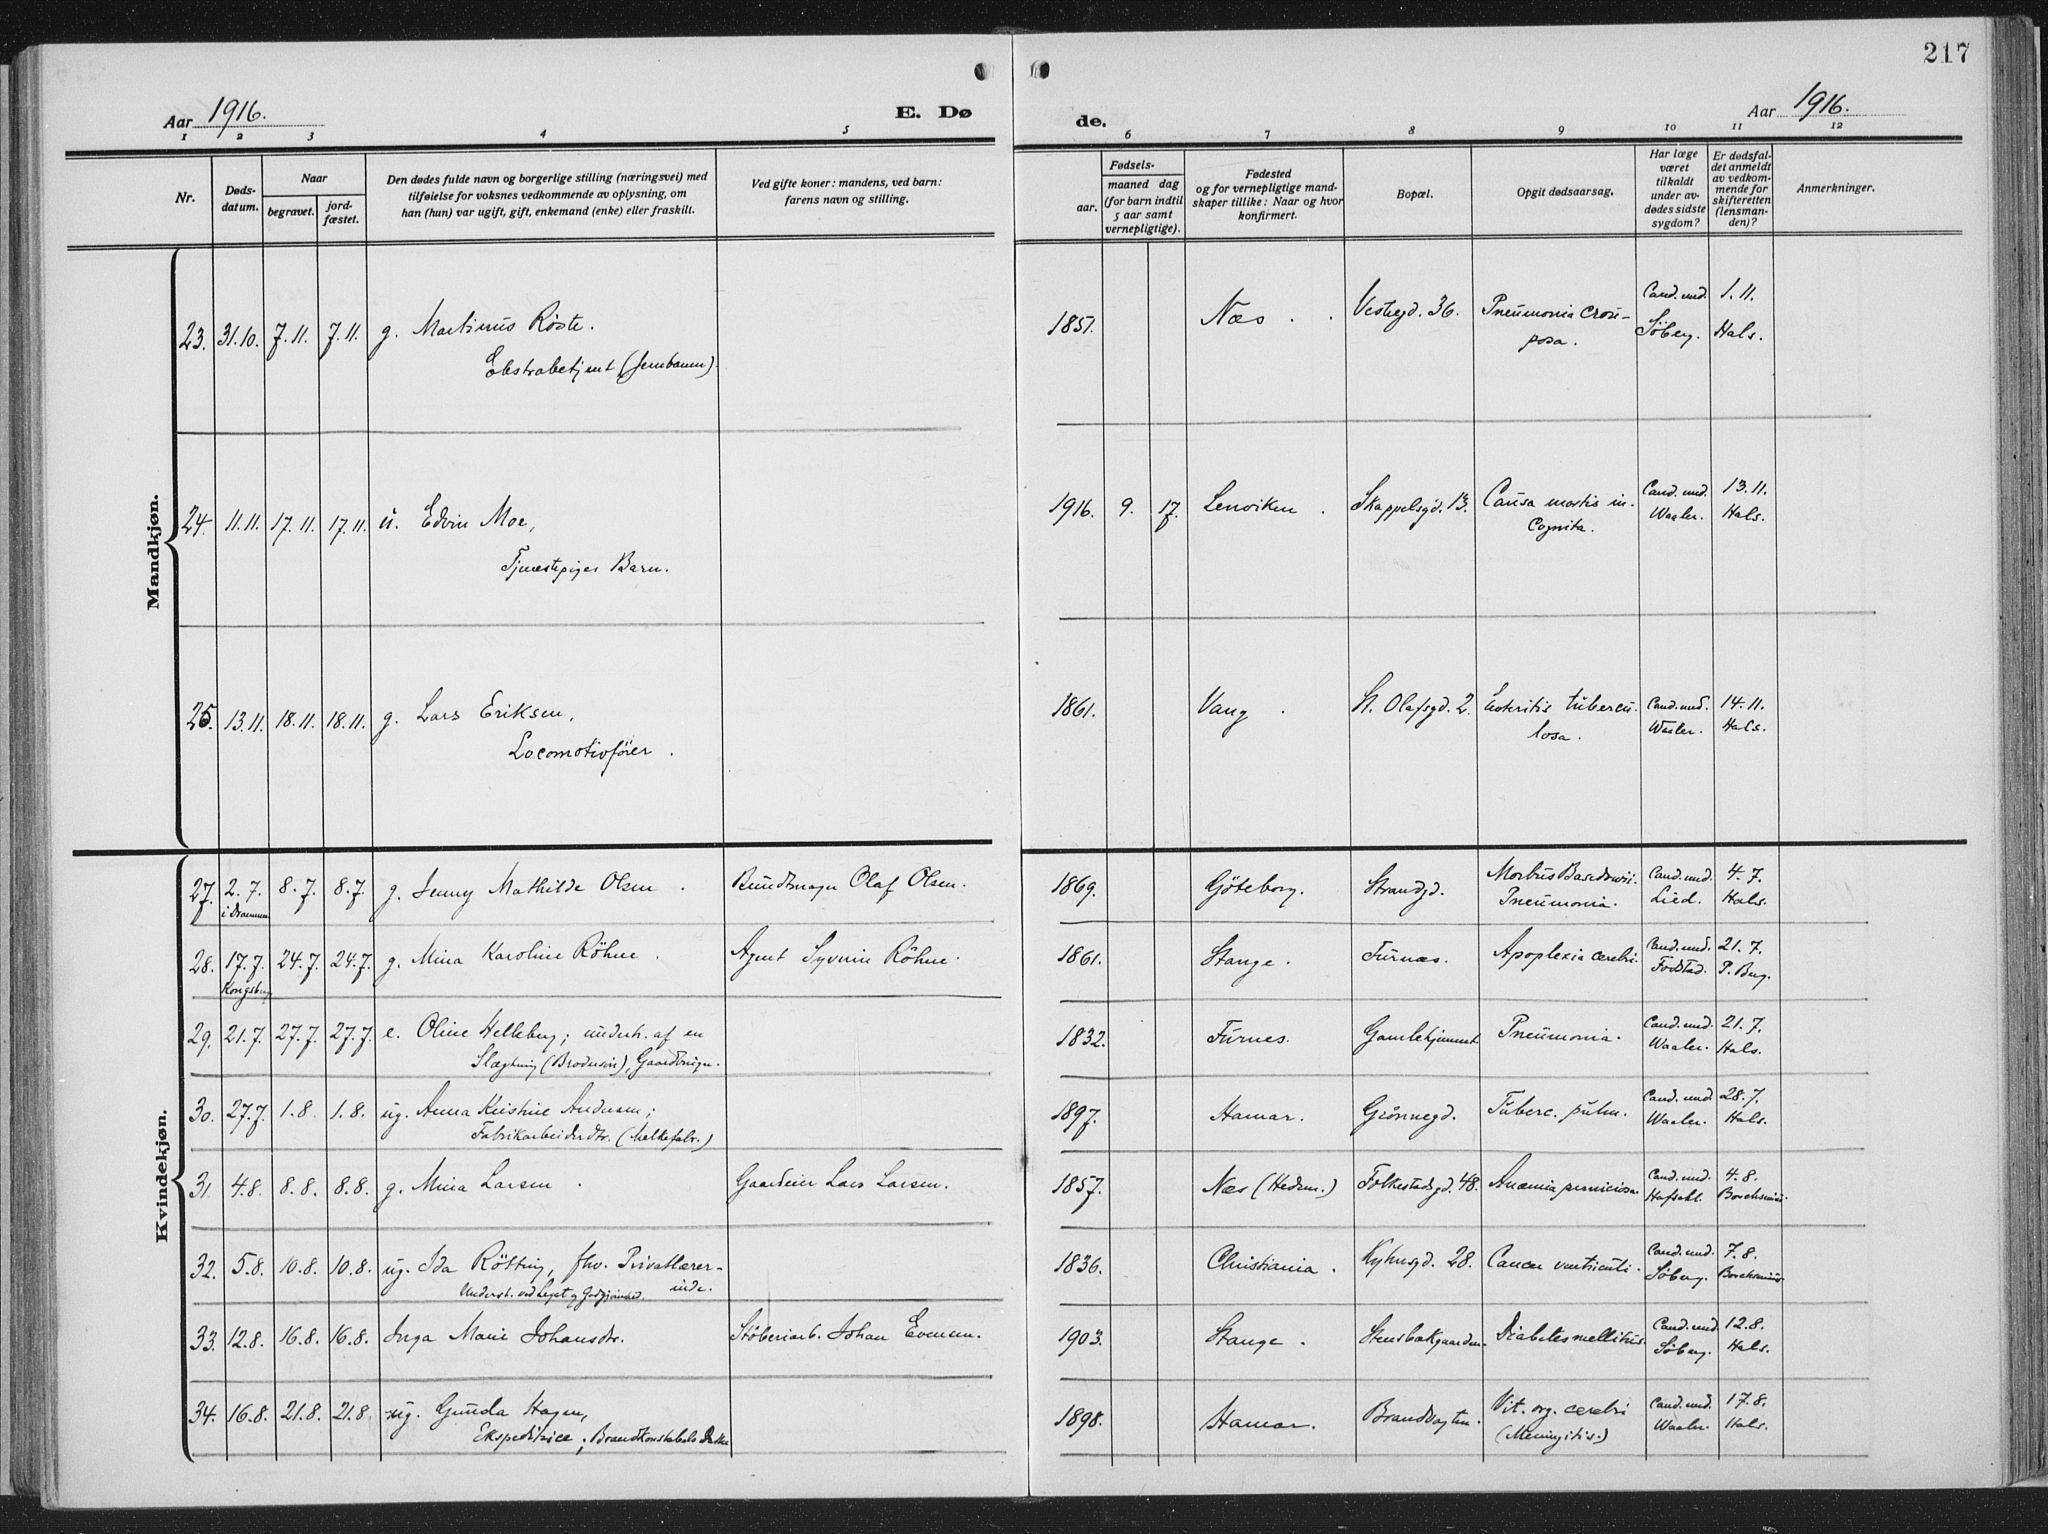 217
Aar 1916.
E. Dø
de.
Aar 1916.
1 2 3 4 5 6 7 8 9 10 11 12
Nr.
Døds-
datum.
Naar
begravet.
jord-
fæstet.
Den dødes fulde navn og borgerlige stilling (næringsvei) med
tilføielse for voksnes vedkommende av oplysning, om
han (hun) var ugift, gift, enkemand (enke) eller fraskilt.
Ved gifte koner: mandens, ved barn:
farens navn og stilling.
Fødsels-
aar.
maaned dag
(for barn indtil
5 aar samt
vernepligtige).
Fødested
og for vernepligtige mand-
skaper tillike: Naar og hvor
konfirmert.
Bopæl.
Opgit dødsaarsag.
Har læge
været
tilkaldt
under av-
dødes sidste
sygdom?
Er dødsfal-
det anmeldt
av vedkom-
mende for
skifteretten
(lensman-
den)?
Anmerkninger.
Mandkjøn.
23. 31.10. 7.11. 7.11. g. Martinus Røste. 1851. Næs. Vestregd. 36. Pneumonia crou- Cand. med. 1.11.
Ekstrabetjent (Jernbanen). posa. Söberg. Hals.
24. 11.11. 17.11. 17.11. u. Edvin Moe, 1916. 9. 17. Lenviken. Skappelsgd. 13. Causa mortis in- Cand. med. 13.11.
Tjenestepiges Barn. cognita. Waaler. Hals.
25. 13.11. 18.11. 18.11. g. Lars Eriksen, 1861. Vang. St. Olafsgd. 2. Enteritis tubercu- Cand. med. 14.11.
Locomotivfører. losa. Waaler. Hals.
Kvindekjøn.
27. 2.7. 8.7. 8.7. g. Jenny Mathilde Olsen. Buntmager Olaf Olsen. 1869. Göteborg. Strandgd. Morbus Basedowii. Cand. med. 4.7.
i Drammen Pneumonia. Lied. Hals.
28. 17.7. 24.7. 24.7. g. Mina Karoline Röhne. Agent Syverin Röhne. 1861. Stange. Furnæs. Apoplexia cerebri. Cand. med. 21.7.
Kongsberg Fodstad. P. Berg.
29. 21.7. 27.7. 27.7. e. Oline Helleberg; underh. af en 1832. Furnes. Gamlehjemmet. Pneumonia. Cand. med. 21.7.
Slægtning (Brodersøn), Gaardbruger. Waaler. Hals.
30. 27.7. 1.8. 1.8. ug. Anna Kristine Andersen; 1897. Hamar. Grönnegd. Tuberc. pulm. Cand. med. 28.7.
Fabrikarbeiderdtr. (Melkefabr.) Waaler. Hals.
31. 4.8. 8.8. 8.8. g. Mina Larsen. Gaardeier Lars Larsen. 1857. Næs (Hedem.) Folkestadsgd. 48. Anæmia perniciosa. Cand. med. 4.8.
Hafsahl.
32. 5.8. 10.8. 10.8. ug. Ida Rötting, fhv. Privatlærer- 1836. Christiania. Kyhnsgd. 28. Cancer ventriculi. Cand. med. 7.8.
inde. Söberg.
Underst. ved Legat og Godgjørenhed.
33. 12.8. 16.8. 16.8. Inga Marie Johansdtr. Støberiarb. Johan Evensen. 1903. Stange. Stensbakgaarden. Diabetes mellitus. Cand. med. 12.8.
Söberg. Hals.
34. 16.8. 21.8. 21.8. ug. Gunda Hagen, 1898. Hamar. Brandvagten. Vit. org. cerebri Cand. med. 17.8.
Ekspeditrice; Brandkonstabels Datter (Meningitis.) Waaler. Hals.